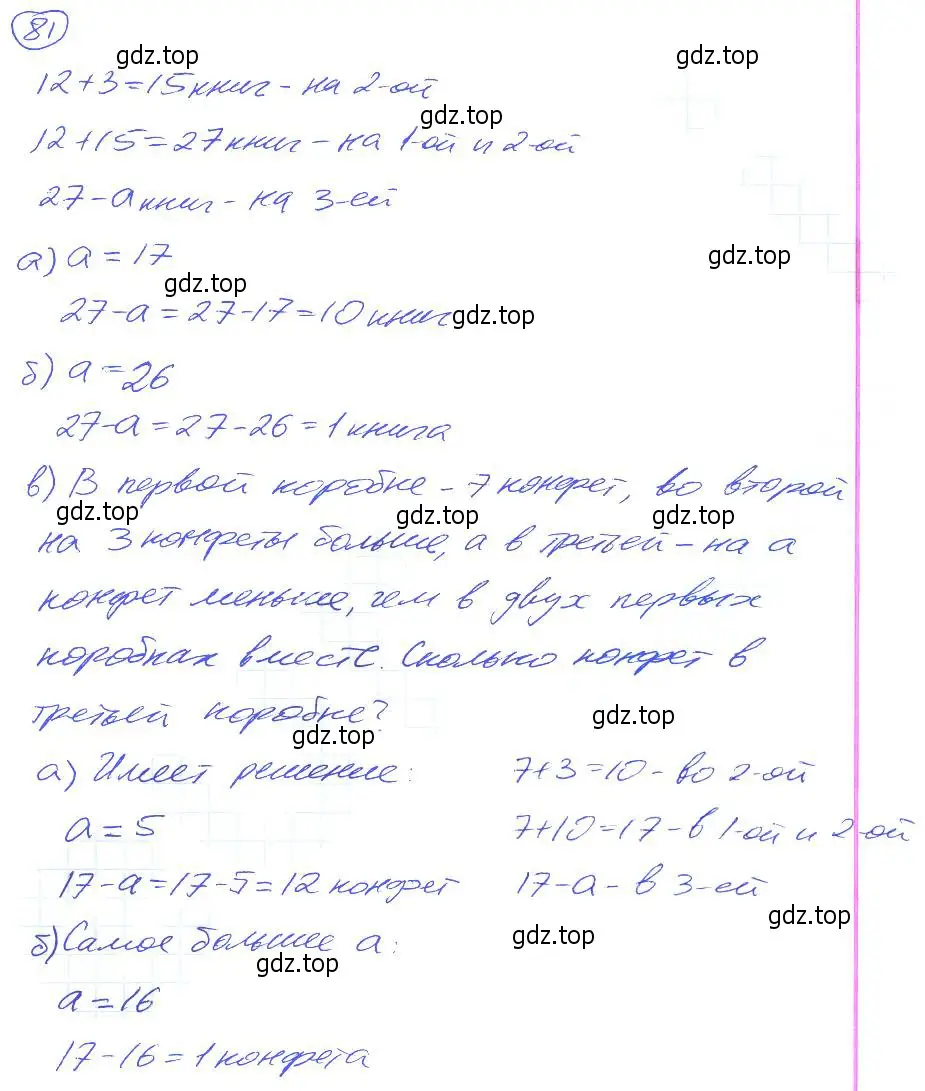 81
gdz.top gdz.top
12+3=15 книг - на 2-ой
gdz.top
12+15=27 книг - на 1-ой и 2-ой
27-а книг - на 3-ей
а) а = 17
gdz.top
gdz.top
27-а = 27-17=10 книг
gdz.top
б) а = 26
27-а = 27-26 = 1 книга
в) В первой коробке - 7 конфет, во второй
gdz.top gdz.top gdz.top
на 3 конфеты больше, а в третьей - на а
конфет меньше, чем в двух первых
коробках вместе. Сколько конфет в
третьей коробке?
gdz.top
gdz.top
а) Имеет решение: 7+3=10 - во 2-ой
а = 5 7+10=17 - в 1-ой и 2-ой
17-а=17-5=12 конфет 17-а - в 3-ей
gdz.top
б) Самое большее а:
gdz.top
gdz.top
а = 16
17-16=1 конфета